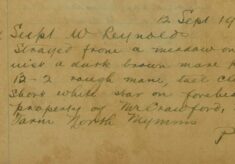 12 Sept 19
Supt W Reynolds
Strayed from a meadow on
a dark brown mare
13-2 rough mane,
short white star on forehead
property of Mr Crawford,
Farm North Mymms